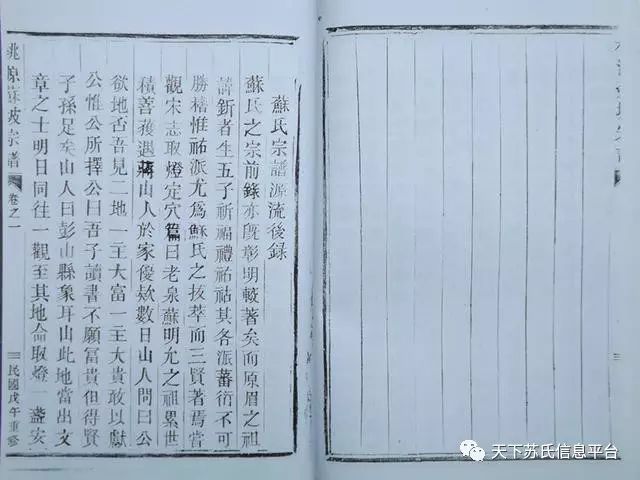 蘇氏宗譜源流後録
蘇氏之宗前錄亦既彰明較著矣而原眉之祖
諱釿者生五子祈福禮祐祜其各派蕃衍不可
勝稽惟祐派尤爲蘇氏之抜萃而三賢著焉嘗
觀宋志取燈定穴篇曰老泉蘇明允之祖累世
積善獲遇蔣山人於家後欵數日山人問曰公
欲地舌吾見二地一主大富一主大貴敢以獻
公惟公所擇公曰吾子讀書不願冨貴但得賢
子孫足矣山人曰彭山縣象耳山此地當出文
章之士明日同往一觀至其地命取燈一盞安
桃原蘇坡宗譜
卷之一
民國戊午重修
天下苏氏信息平台